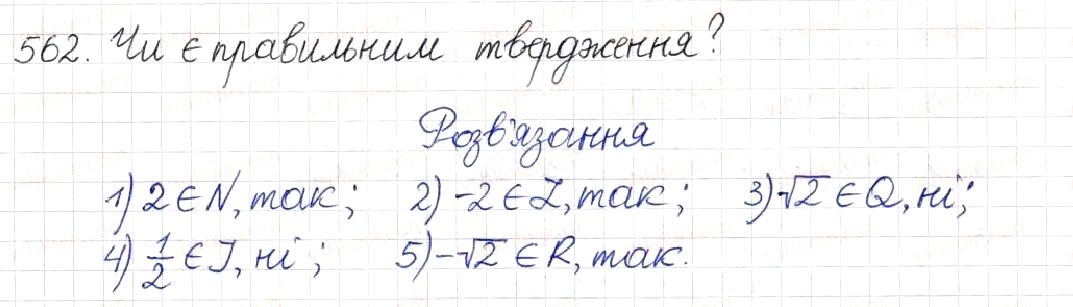 562. Чи є правильним твердження?
Розв'язання
1) 2 ∈ N, так; 2) -2 ∈ Z, так; 3) √2 ∈ Q, ні;
4) 1/2 ∈ J, ні; 5) -√2 ∈ R, так.